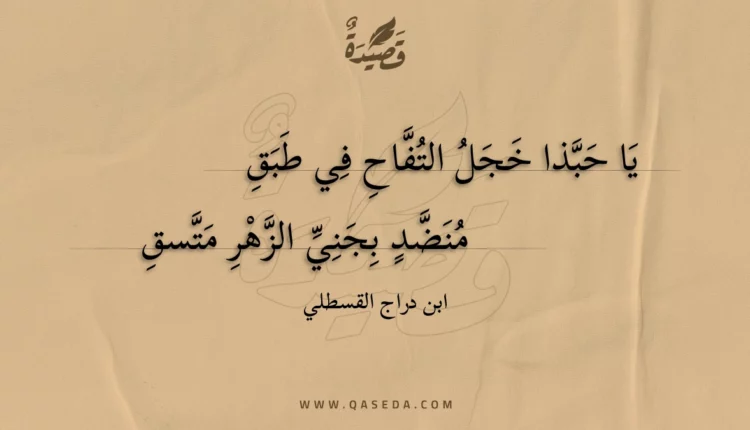 قَصِيدَةٌ
يَا حَبَّذا خَجَلُ التُفَّاحِ فِي طَبَقِ
مُنَضَّدٍ بِجَنِيِّ الزَّهْرِ مَتَّسقِ
ابن دراج القسطلي
WWW.QASEDA.COM